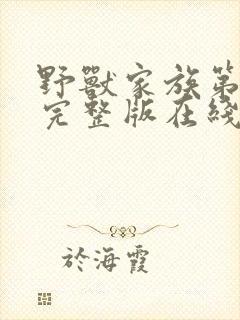 野獸家族第
完整版在綫
於海霞